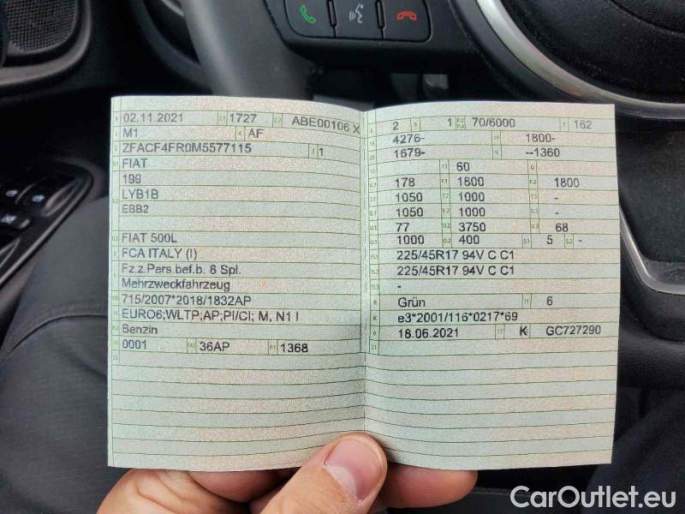 02.11.2021 1727 ABE00106 X
M1 AF
ZFACF4FR0M5577115 1
FIAT
199
LYB1B
EBB2
FIAT 500L
FCA ITALY (I)
Fz.z.Pers.bef.b. 8 Spl.
Mehrzweckfahrzeug
715/2007*2018/1832AP
EURO6;WLTP;AP;PI/CI; M, N1 I
Benzin
0001 36AP 1368
2 1 70/6000 162
4276- 1800-
1679- --1360
60
178 1800 1800
1050 1000 -
1050 1000 -
77 3750 68
1000 400 5 -
225/45R17 94V C C1
225/45R17 94V C C1
-
Grün 6
e3*2001/116*0217*69
18.06.2021 K GC727290
CarOutlet.eu